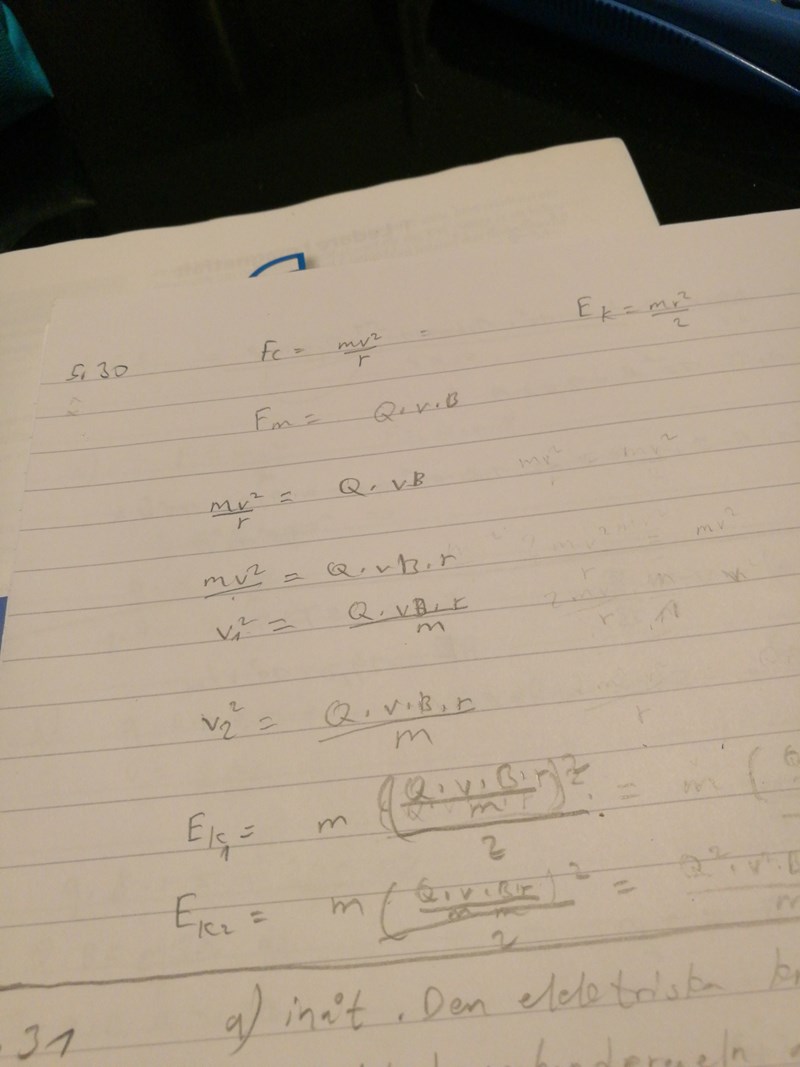 5.30 Fc = mv²/r = Ek = mv²/2
Fm = Q·v·B
mv²/r = Q·vB
mv² = Q·vB·r
v₁² = Q·vB·r/m
v₂² = Q·v·B·r/m
Ek₁ = m (Q·v·B·r/m·r)²/2 = m (
Ek₂ = m (Q·v·Br/m)²/2 = Q²·v²·B
31 a) inåt. Den elektriska